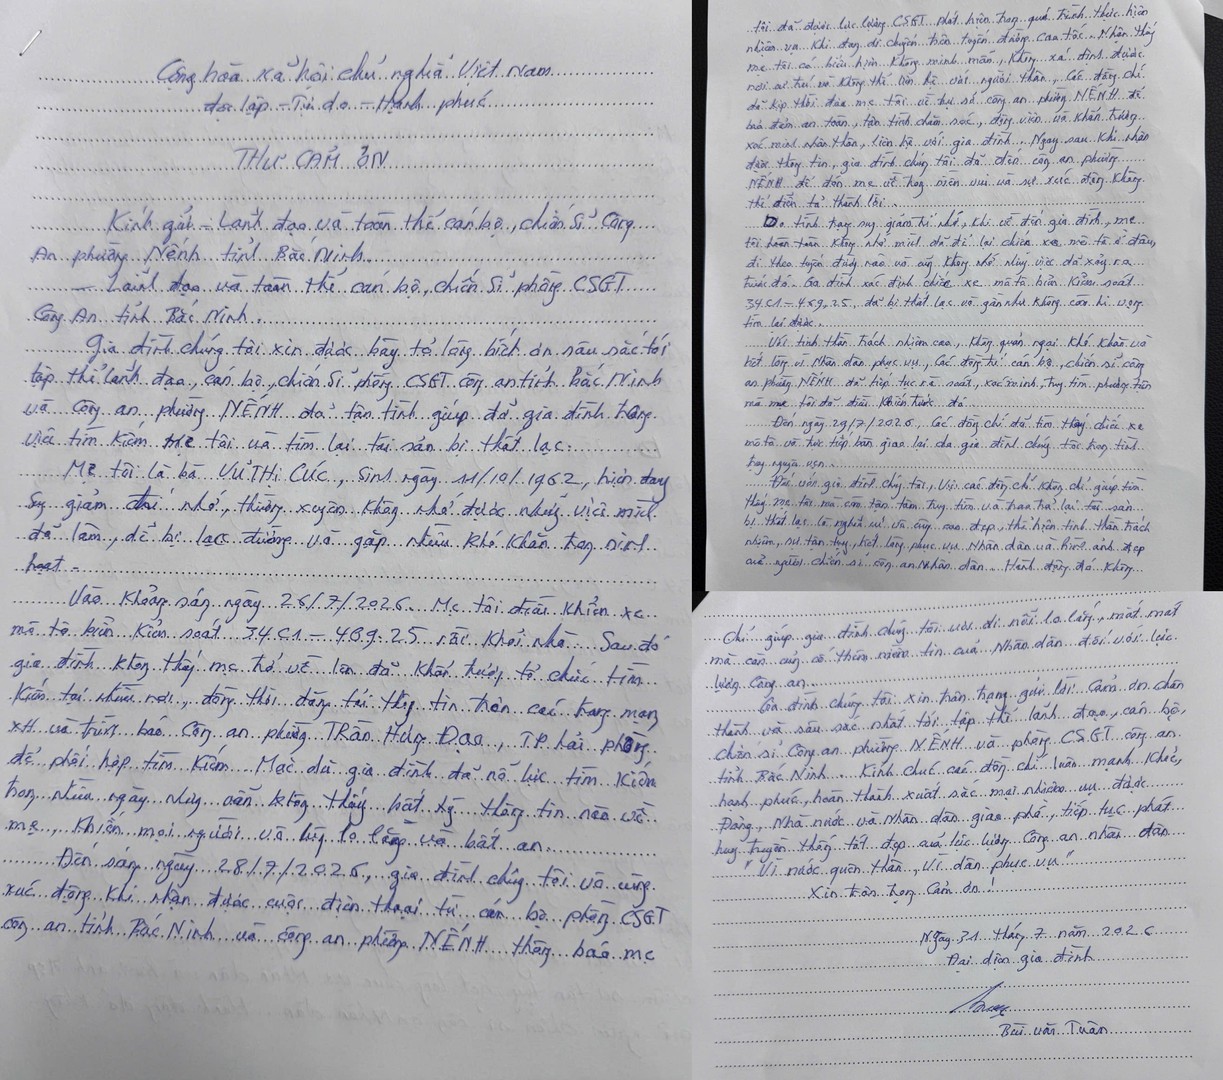 Cộng hòa xã hội chủ nghĩa Việt Nam
độc lập - Tự do - Hạnh phúc
THƯ CẢM ƠN
Kính gửi - Lãnh đạo và toàn thể cán bộ, chiến sĩ Công
An phường Nếnh tỉnh Bắc Ninh
- Lãnh đạo và toàn thể cán bộ, chiến sĩ phòng CSGT
Công An tỉnh Bắc Ninh.
Gia đình chúng tôi xin được bày tỏ lòng biết ơn sâu sắc tới
tập thể lãnh đạo, cán bộ, chiến sĩ phòng CSGT công an tỉnh Bắc Ninh
và Công an phường NẾNH đã tận tình giúp đỡ gia đình trong
việc tìm kiếm mẹ tôi và tìm lại tài sản bị thất lạc.
Mẹ tôi là bà VŨ THỊ CÚC, Sinh ngày 11/10/1962, hiện đang
suy giảm trí nhớ, thường xuyên không nhớ được những việc mình
đã làm, dễ bị lạc đường và gặp nhiều khó khăn trong sinh
hoạt.
Vào khoảng sáng ngày 26/7/2026. Mẹ tôi điều khiển xe
mô tô biển kiểm soát 34C1-469.25 rời khỏi nhà. Sau đó
gia đình không thấy mẹ trở về lên đã khẩn trương tổ chức tìm
kiếm tại nhiều nơi, đồng thời đăng tải thông tin trên các trang mạng
XH và trình báo Công an phường TRần Hưng Đạo, TP hải phòng
để phối hợp tìm kiếm. Mặc dù gia đình đã nỗ lực tìm kiếm
trong nhiều ngày nhưng vẫn không thấy bất kỳ thông tin nào về
mẹ, khiến mọi người vô cùng lo lắng và bất an.
Đến sáng ngày 28/7/2026, gia đình chúng tôi vô cùng
xúc động khi nhận được cuộc điện thoại từ cán bộ phòng CSGT
công an tỉnh Bắc Ninh và công an phường NẾNH thông báo mẹ
tôi đã được lực lượng CSGT phát hiện trong quá trình thực hiện
nhiệm vụ khi đang di chuyển trên tuyến đường cao tốc. Nhận thấy
mẹ tôi có biểu hiện không minh mẫn, không xác định được
nơi cư trú và không thể liên hệ với người thân, các đồng chí
đã kịp thời đưa mẹ tôi về trụ sở công an phường NẾNH để
bảo đảm an toàn, tận tình chăm sóc, động viên và khẩn trương
xác minh nhân thân, liên hệ với gia đình. Ngay sau khi nhận
được thông tin, gia đình chúng tôi đã đến công an phường
NẾNH để đón mẹ về trong niềm vui và sự xúc động không
thể diễn tả thành lời.
Do tình trạng suy giảm trí nhớ, khi về đến gia đình, mẹ
tôi hoàn toàn không nhớ mình đã để lại chiếc xe mô tô ở đâu,
đi theo tuyến đường nào và cũng không nhớ những việc đã xảy ra
trước đó. Gia đình xác định chiếc xe mô tô biển kiểm soát
34C1-469.25 đã bị thất lạc và gần như không còn hi vọng
tìm lại được.
Với tinh thần trách nhiệm cao, không quản ngại khó khăn và
hết lòng vì Nhân dân phục vụ, các đồng chí cán bộ, chiến sĩ công
an phường NẾNH đã tiếp tục rà soát, xác minh, truy tìm phương tiện
mà mẹ tôi đã điều khiển trước đó.
Đến ngày 29/7/2026, các đồng chí đã tìm thấy chiếc xe
mô tô và trực tiếp bàn giao lại cho gia đình chúng tôi trong tình
trạng nguyên vẹn.
Đối với gia đình chúng tôi, việc các đồng chí không chỉ giúp tìm
thấy mẹ tôi mà còn tận tâm truy tìm và trao trả lại tài sản
bị thất lạc là nghĩa cử vô cùng cao đẹp, thể hiện tinh thần trách
nhiệm, sự tận tụy, hết lòng phục vụ Nhân dân và hình ảnh đẹp
của người chiến sĩ công an Nhân dân. Hành động đó không
chỉ giúp gia đình chúng tôi vơi đi nỗi lo lắng, mất mát
mà còn củng cố thêm niềm tin của Nhân dân đối với lực
lượng Công an.
Gia đình chúng tôi xin trân trọng gửi lời cảm ơn chân
thành và sâu sắc nhất tới tập thể lãnh đạo, cán bộ,
chiến sĩ Công an phường NẾNH và phòng CSGT công an
tỉnh Bắc Ninh. Kính chúc các đồng chí luôn mạnh khỏe,
hạnh phúc, hoàn thành xuất sắc mọi nhiệm vụ được
Đảng, Nhà nước và Nhân dân giao phó, tiếp tục phát
huy truyền thống tốt đẹp của lực lượng Công an nhân dân
"Vì nước quên thân, vì dân phục vụ"
Xin trân trọng Cảm ơn!
Ngày 31 tháng 7 năm 2026
Đại diện gia đình
Bùi văn Tuân